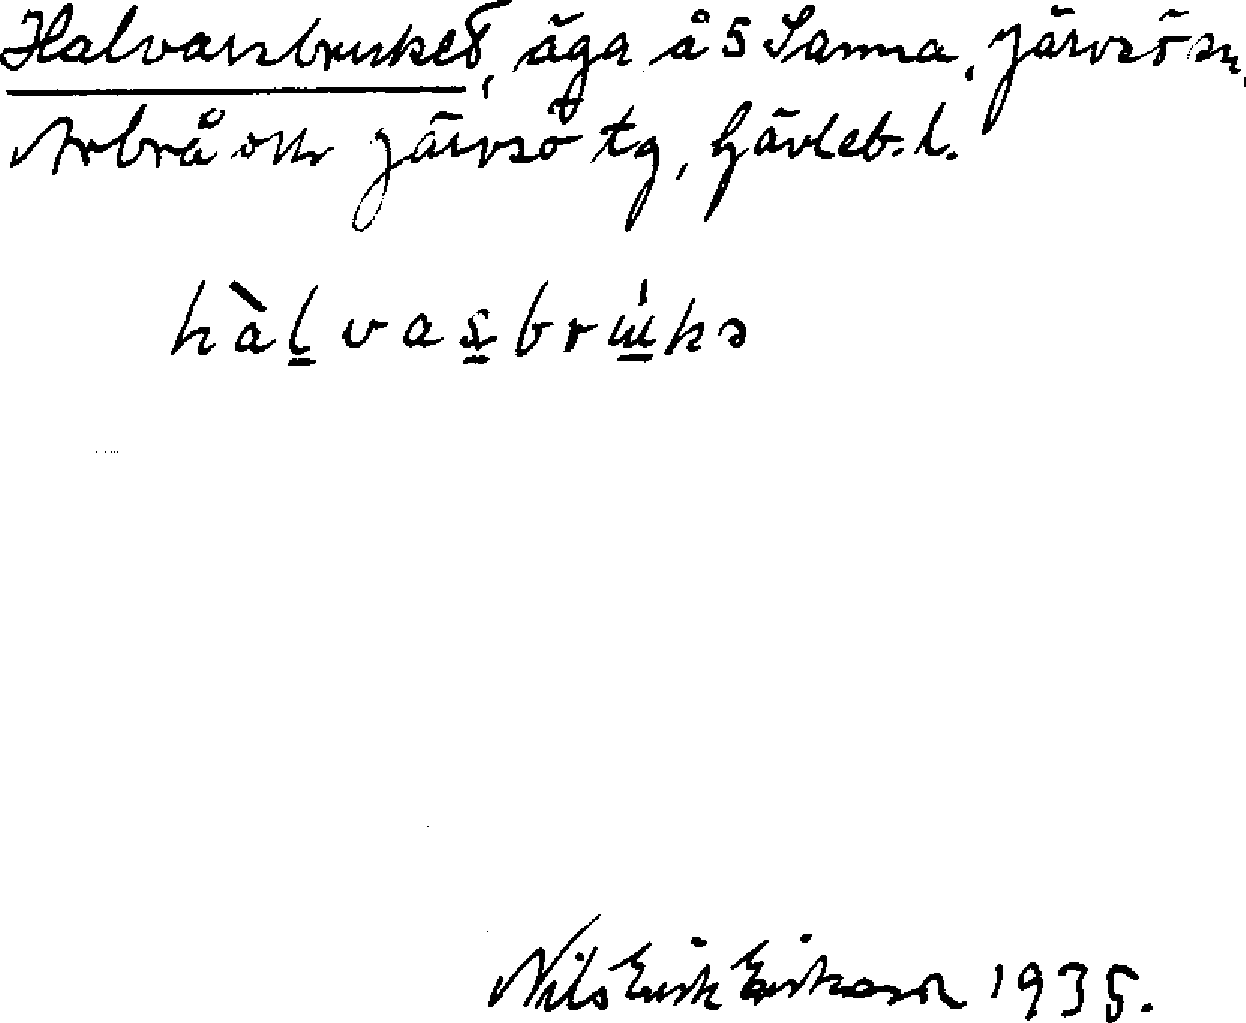 Halvarsbruket, äga å 5 Sanna, Järvsö sn,
Arbrå och Järvsö tg, Gävleb. l.
hàl̲vas̲brɯ̲́kə
Nils Erik Eriksson 1935.